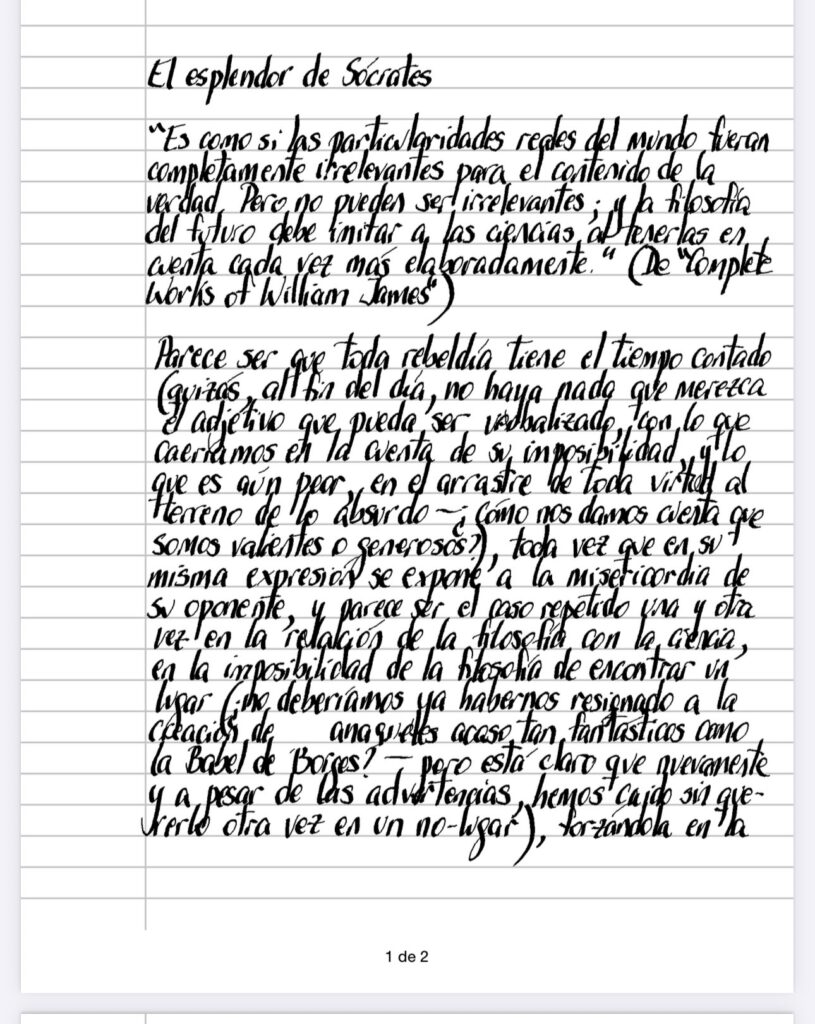 El esplendor de Sócrates
"Es como si las particularidades reales del mundo fueran
completamente irrelevantes para el contenido de la
verdad. Pero no pueden ser irrelevantes; y la filosofía
del futuro debe imitar a las ciencias al tenerlas en
cuenta cada vez más elaboradamente." (De "Complete
Works of William James")
Parece ser que toda rebeldía tiene el tiempo contado
(quizás, al fin del día, no haya nada que merezca
el adjetivo que pueda ser verbalizado, con lo que
caeríamos en la cuenta de su imposibilidad, y lo
que es aún peor, en el arrastre de toda virtud al
terreno de lo absurdo — ¿cómo nos damos cuenta que
somos valientes o generosos?), toda vez que en su
misma expresión se expone a la misericordia de
su oponente, y parece ser el caso repetido una y otra
vez en la relación de la filosofía con la ciencia,
en la imposibilidad de la filosofía de encontrar un
lugar (¿no deberíamos ya habernos resignado a la
creación de anaqueles acaso tan fantásticos como
la Babel de Borges? — pero está claro que nuevamente
y a pesar de las advertencias, hemos caído sin que-
rerlo otra vez en un no-lugar), forzándola en la
1 de 2